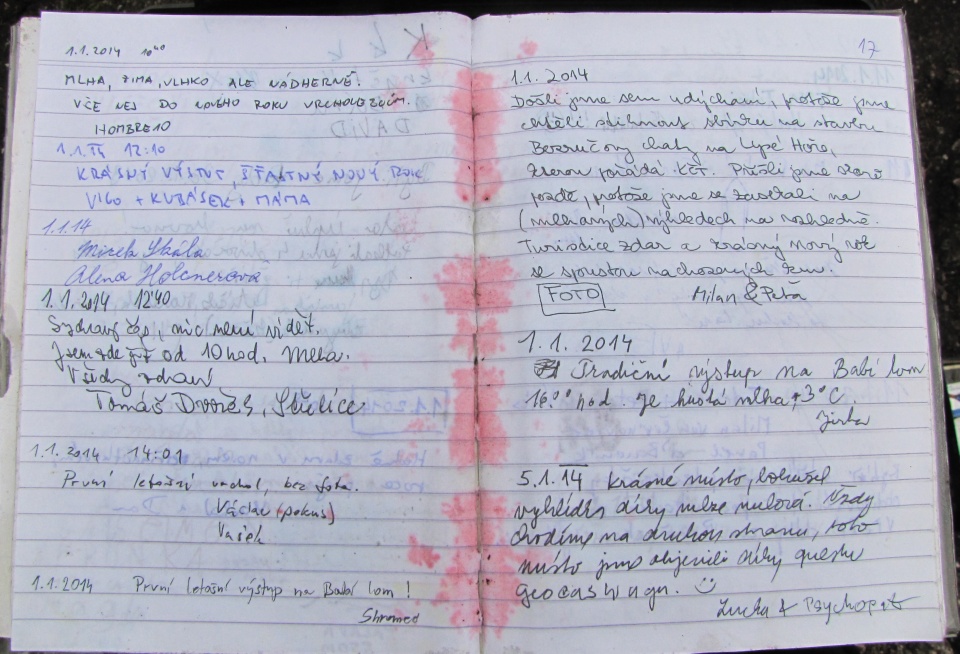 1.1.2014 10⁴⁰
MLHA, ZIMA, VLHKO ALE NÁDHERNĚ!
VŠE NEJ DO NOVÉHO ROKU VRCHOLEDIJÍM.
HOMBRE10
1.1.14 12:10
KRÁSNÝ VÝSTUP, ŠŤASTNÝ NOVÝ ROK
VIGO + KUBÁSEK + MÁMA
1.1.14
Mirek Skála
Alena Holcnerová
1.1.2014 12⁴⁰
Szdravy čas, nic není vidět.
Jsem zde již od 10 hod. Mlha.
Všichny zdraví
Tomáš Dvořák, Střelice
1.1.2014 14:01
První letošní vrchol, bez fota.
Václav (pokus)
Vašek
1.1.2014 První letošní výstup na Babí lom!
Shromed
17
1.1. 2014
Došli jsme sem udýchaní, protože jsme
chtěli stihnout sbírku na stavbu
Bezručovy chaty na Lysé Hoře,
kterou pořádá KČT. Přišli jsme skoro
pozdě, protože jsme se zasekali na
(mlhaných) výhledech na rozhledně.
Turiodice zdar a krásný nový rok
se spoustou nachozených km.
FOTO Milan & Peťa
1.1. 2014
Tradiční výstup na Babí lom
16⁰⁰ hod. Je hustá mlha, +3°C.
Jirka
5.1.14 Krásné místo, bohužel
výhled díky mlze nulová. Vždy
chodíme na druhou stranu, toto
místo jsme objevili díky questu
Geocashingu. ☺
Lucka & Psychopat